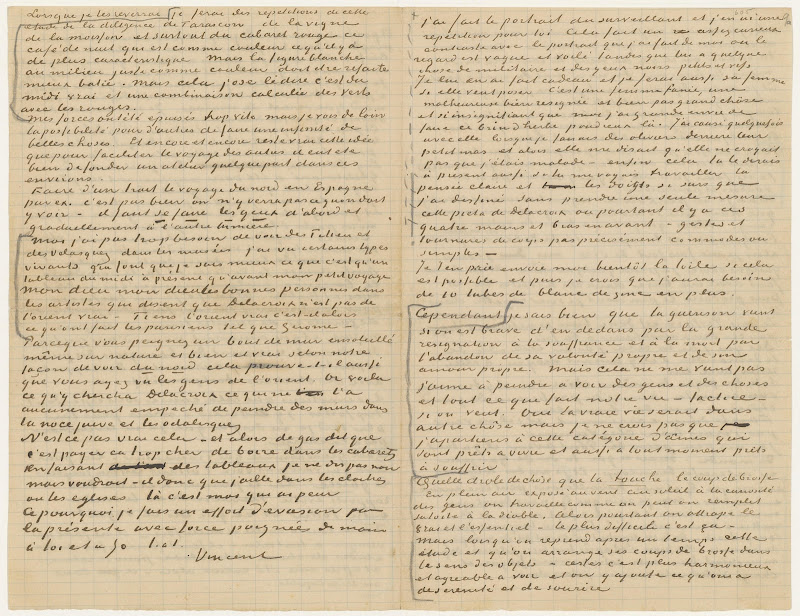 Lorsque je les reverrai je ferai des repetitions de cette
etude de la diligence de Tarascon de la vigne
de la moisson et surtout du cabaret rouge ce
café de nuit qui est comme couleur ce qu'il y a
de plus caracteristique. Mais la figure blanche
au milieu juste comme couleur doit etre refaite
mieux batie. Mais cela j'ose le dire c'est du
midi vrai et une combinaison calculée des verts
avec les rouges.
Mes forces ont été épuisés trop vite mais je vois de loin
la possibilité pour d'autres de faire une infinité de
belles choses. Et encore et encore reste vrai cette idée
que pour faciliter le voyage des autres il eut ete
bien de fonder un atelier quelque part dans ces
environs.
Faire d'un trait le voyage du nord en Espagne
par ex. c'est pas bien on n'y verra pas ce que on doit
y voir – il faut se faire les yeux d'abord et
graduellement à l'autre lumiere.
Moi j'ai pas trop besoin de voir des Titien et
des Velasquez dans les musées j'ai vu certains types
vivants qui font que je sais mieux ce que c'est qu'un
tableau du midi à present qu'avant mon petit voyage
Mon dieu mon dieu les bonnes personnes dans
les artistes qui disent que Delacroix n'est pas de
l'orient vrai – Tiens l'orient vrai c'est alors
ce qu'ont fait les parisiens tel que Gerome –
Parceque vous peignez un bout de mur ensoleillé
même sur nature et bien et vrai selon notre
façon de voir du nord cela prouve-t-il aussi
que vous ayez vu les gens de l'orient. Or voila
ce qu'y chercha Delacroix ce qui ne l'a
aucunement empeché de peindre des murs dans
la noce juive et les odalisques
N'est ce pas vrai cela – et alors de gas dit que
c'est payer ca trop cher de boire dans les cabarets
en faisant des tableaux je ne dis pas non
mais voudrait-il donc que j'aille dans les cloitres
ou les eglises là c'est moi qui ai peur
Ce pourquoi je fais un effort d'evasion par
la présente avec force poignées de main
à toi et a Jo t. à t.
Vincent
j'ai fait le portrait du surveillant et j'en ai une
répétition pour toi Cela fait un assez curieux
contraste avec le portrait que j'ai fait de moi ou le
regard est vague et voilé tandis que lui a quelque
chose de militaire et des yeux noirs petits et vifs
Je lui en ai fait cadeau et je ferai aussi sa femme
si elle veut poser. C'est une femme fanée, une
malheureuse bien resignée et bien pas grand chôse
et si insignifiante que moi j'ai grande envie de
faire ce brin d'herbe poudreux là. J'ai causé quelquefois
avec elle lorsque je faisais des oliviers derriere leur
petit mas et alors elle me disait qu'elle ne croyait
pas que j'etais malade – enfin cela tu le dirais
à présent aussi si tu me voyais travailler la
pensée claire et les doigts si surs que
j'ai dessiné sans prendre une seule mesure
cette pieta de Delacroix ou pourtant il y a ces
quatre mains et bras en avant – gestes et
tournures de corps pas précisement commodes ou
simples –
Je t'en prie envoie moi bientôt la toile si cela
est possible et puis je crois que j'aurai besoin
de 10 tubes de blanc de zinc en plus.
Cependant je sais bien que la guerison vient
si on est brave d'en dedans par la grande
resignation à la souffrance et à la mort par
l'abandon de sa volonté propre et de son
amour propre. Mais cela ne me vient pas
j'aime à peindre à voir des gens et des choses
et tout ce que fait notre vie – factice –
si on veut. Oui la vraie vie serait dans
autre chôse mais je ne crois pas que
j'appartiens à cette catégorie d'âmes qui
sont prêts a vivre et aussi a tout moment prêts
à souffrir
Quelle drole de chôse que la touche le coup de brosse
En plein air exposé au vent au soleil à la curiosité
des gens on travaille comme on peut on remplit
sa toile à la diable. Alors pourtant on attrape le
vrai et l'essentiel – le plus difficile c'est ça –
Mais lorsqu'on reprend après un temps cette
étude et qu'on arrange ses coups de brosse dans
le sens des objets – certes c'est plus harmonieux
et agreable a voir et on y ajoute ce qu'on a
de serenité et de sourire